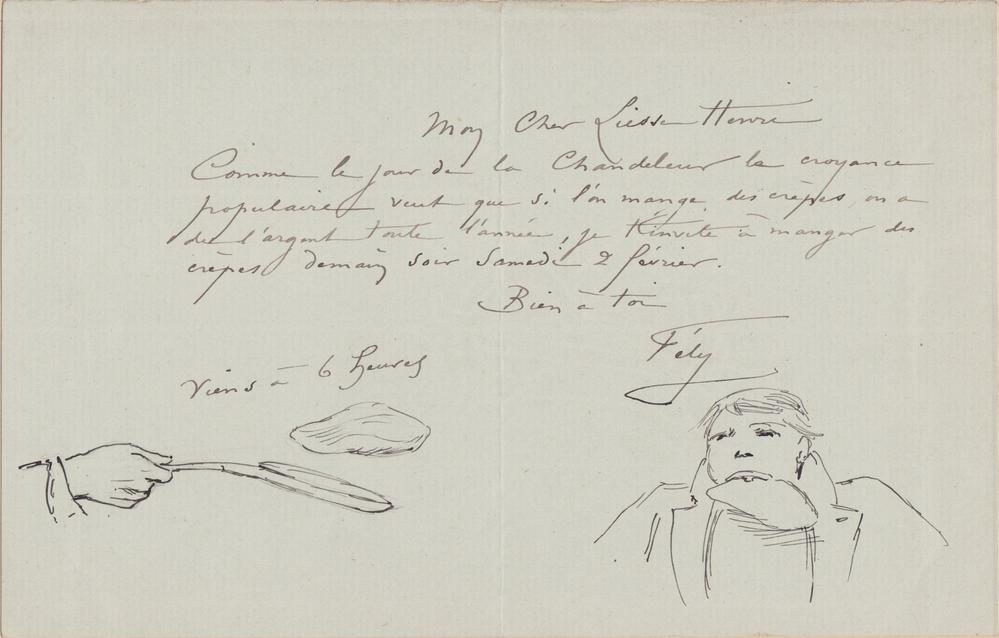 Mon Cher Liesse Henri
Comme le jour de la Chandeleur la croyance
populaire veut que si l'on mange des crêpes, on a
de l'argent toute l'année, je t'invite à manger des
crêpes demain soir Samedi 2 février.
Bien à toi
Fély
Viens à 6 heures